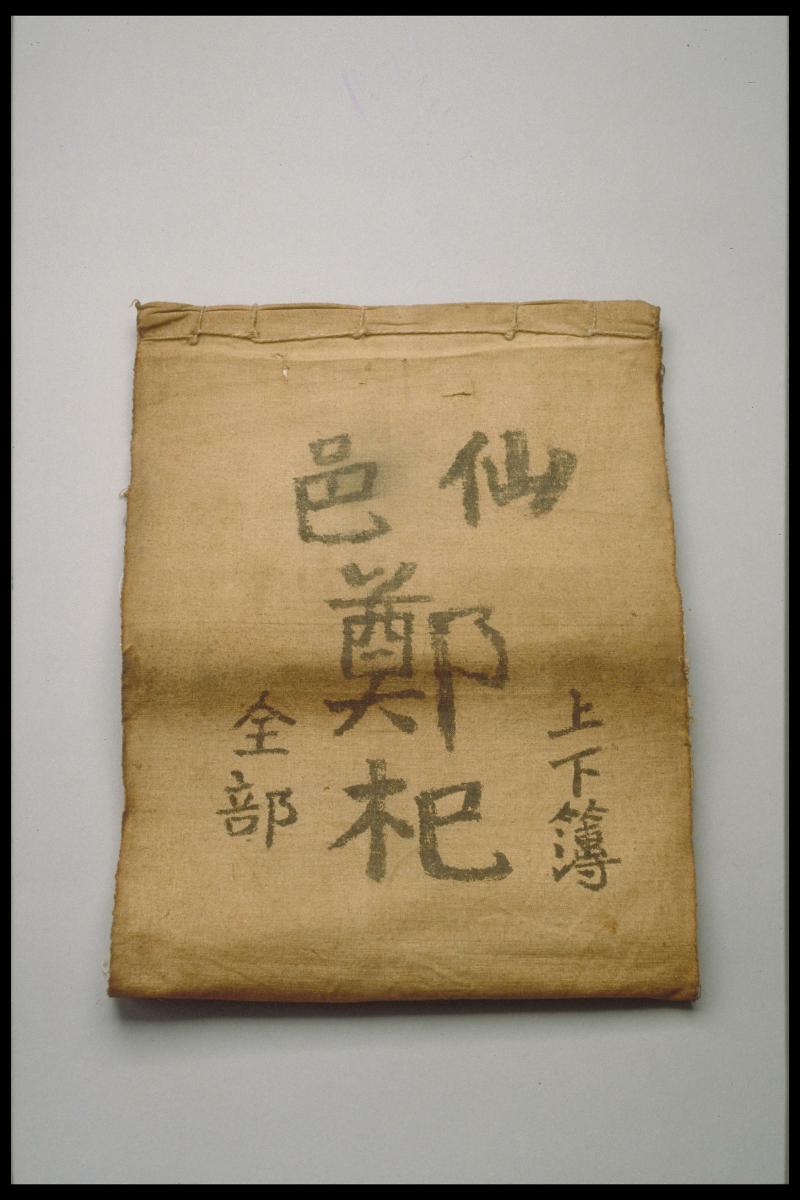 仙邑
鄭杞
上下簿
全部